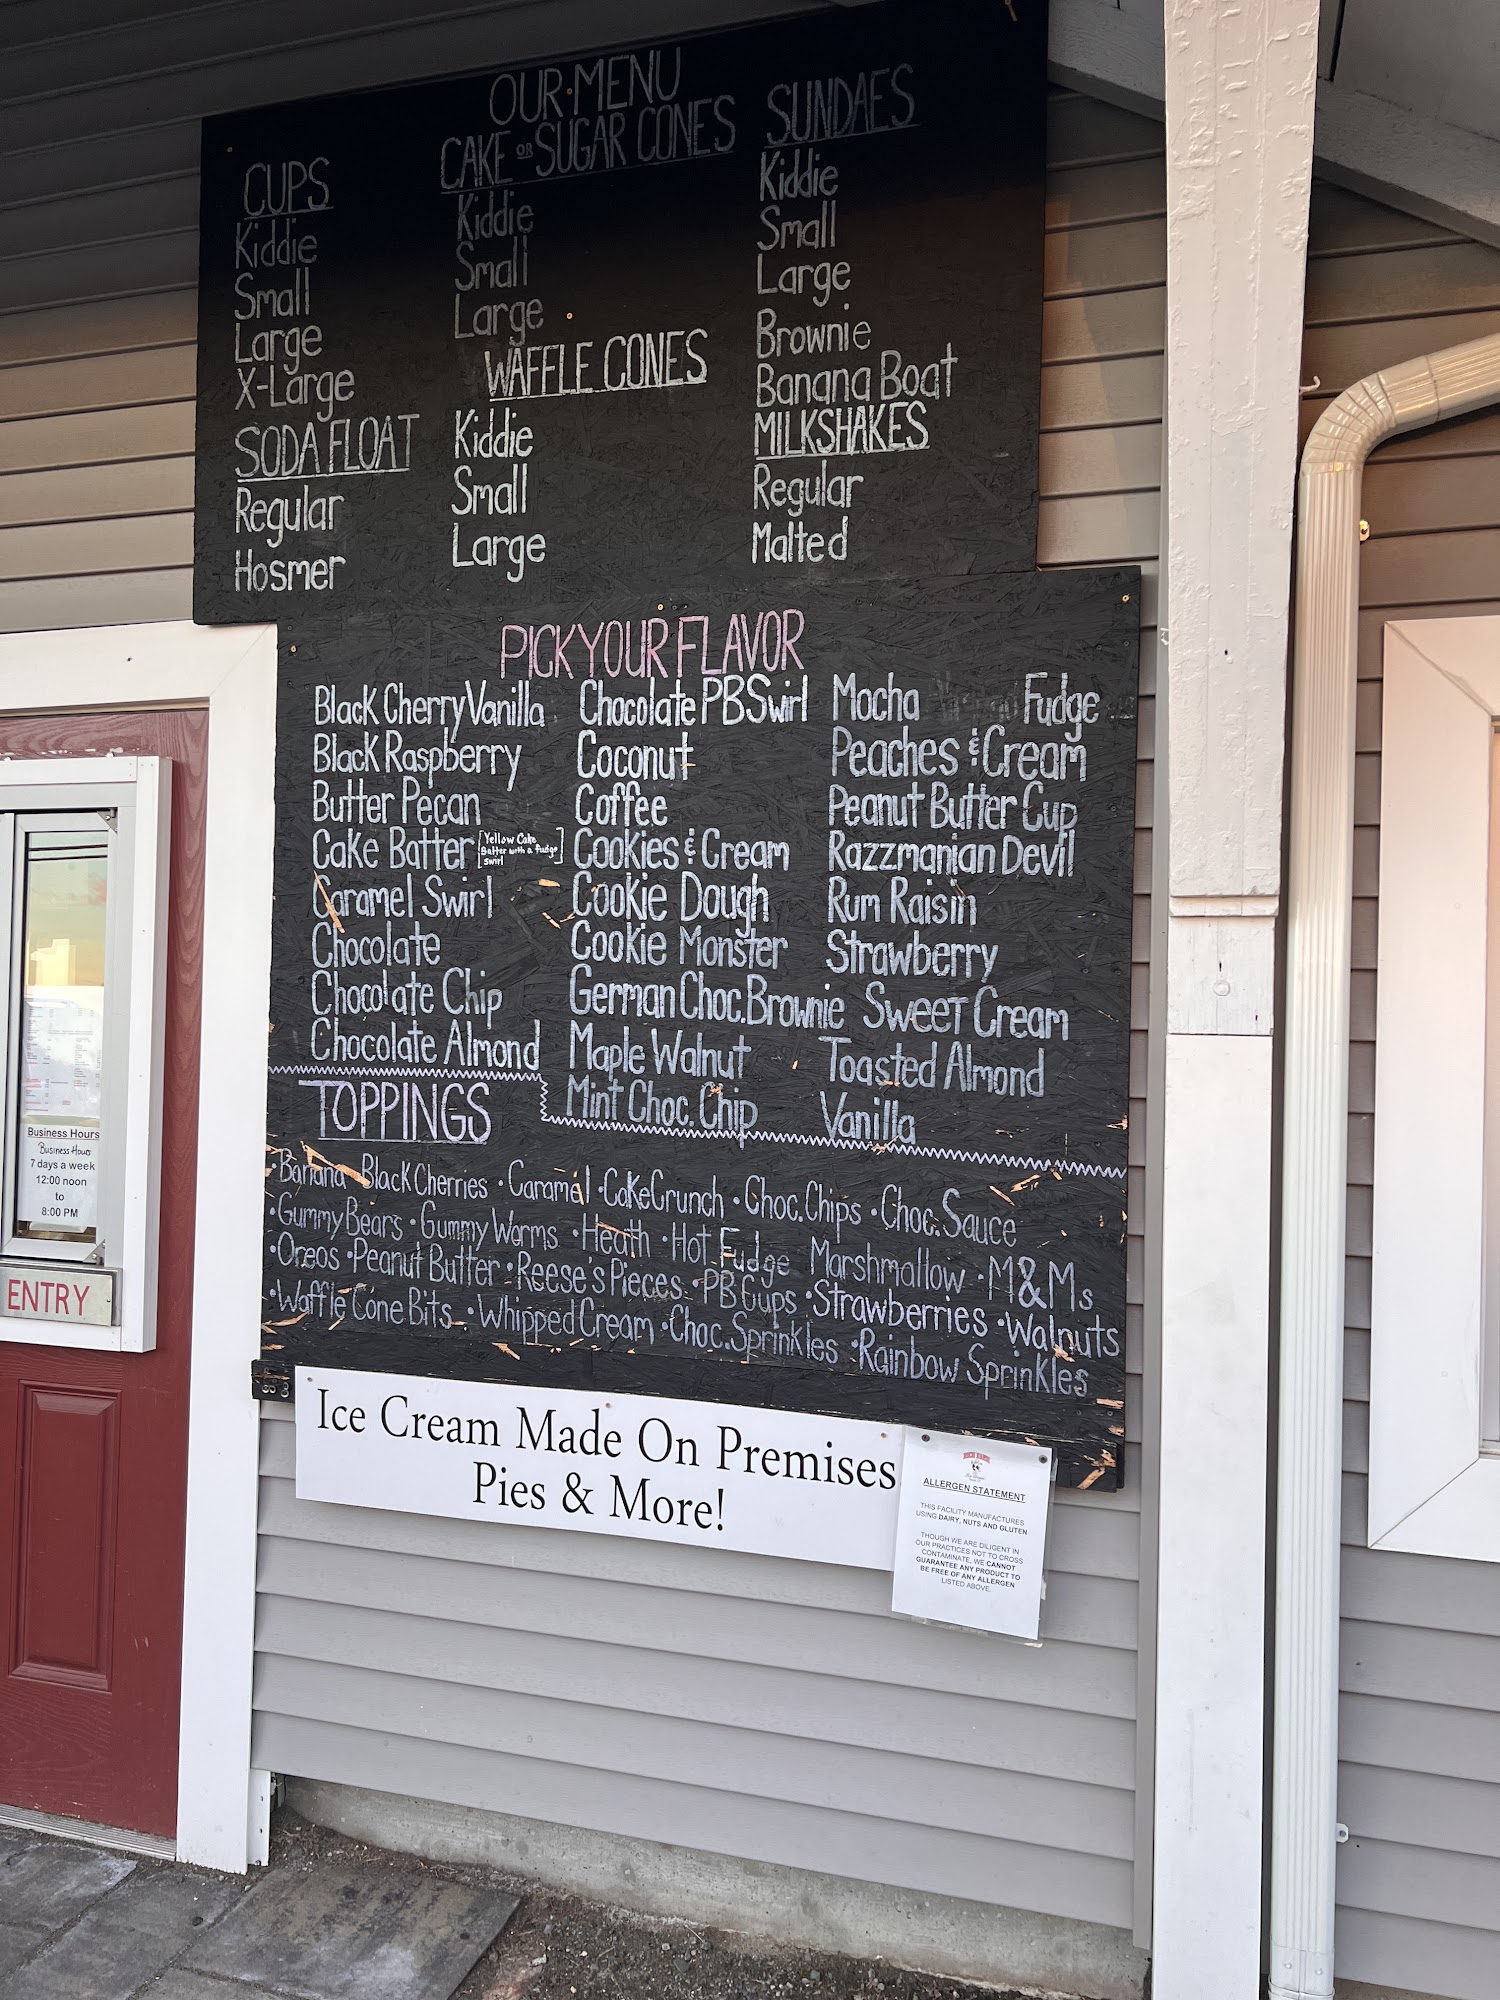 OUR MENU
CUPS
Kiddie
Small
Large
X-Large
SODA FLOAT
Regular
Hosmer
CAKE OR SUGAR CONES
Kiddie
Small
Large
WAFFLE CONES
Kiddie
Small
Large
SUNDAES
Kiddie
Small
Large
Brownie
Banana Boat
MILKSHAKES
Regular
Malted
PICK YOUR FLAVOR
Black Cherry Vanilla
Black Raspberry
Butter Pecan
Cake Batter [Yellow Cake
Batter with a fudge
swirl]
Caramel Swirl
Chocolate
Chocolate Chip
Chocolate Almond
Chocolate PB Swirl
Coconut
Coffee
Cookies & Cream
Cookie Dough
Cookie Monster
German Choc. Brownie
Maple Walnut
Mint Choc. Chip
Mocha Fudge
Peaches & Cream
Peanut Butter Cup
Razzmanian Devil
Rum Raisin
Strawberry
Sweet Cream
Toasted Almond
Vanilla
TOPPINGS
•Banana •Black Cherries •Caramel •Cake Crunch •Choc. Chips •Choc. Sauce
•Gummy Bears •Gummy Worms •Heath •Hot Fudge Marshmallow •M&Ms
•Oreos •Peanut Butter •Reese's Pieces •PB Cups •Strawberries •Walnuts
•Waffle Cone Bits •Whipped Cream •Choc. Sprinkles •Rainbow Sprinkles
Ice Cream Made On Premises
Pies & More!
ALLERGEN STATEMENT
THIS FACILITY MANUFACTURES
USING DAIRY, NUTS AND GLUTEN
THOUGH WE ARE DILIGENT IN
OUR PRACTICES NOT TO CROSS
CONTAMINATE, WE CANNOT
GUARANTEE ANY PRODUCT TO
BE FREE OF ANY ALLERGEN
LISTED ABOVE.
Business Hours
Business Hours
7 days a week
12:00 noon
to
8:00 PM
ENTRY